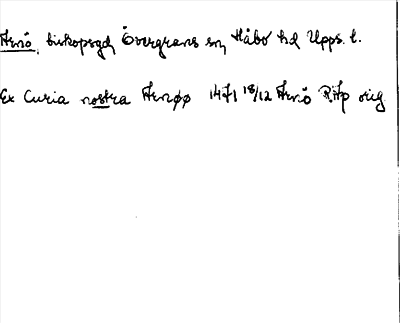 Arnö, biskopsgd, Övergrans sn, Håbo hd Upps. l.
Ex Curia nostra Arnøø 1471 18/12 Arnö RAp orig